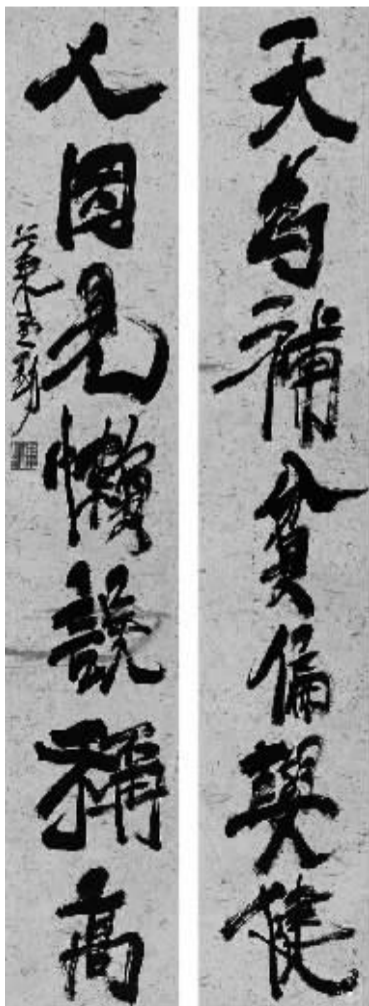 天為補貧偏與健
人因見懶誤稱高